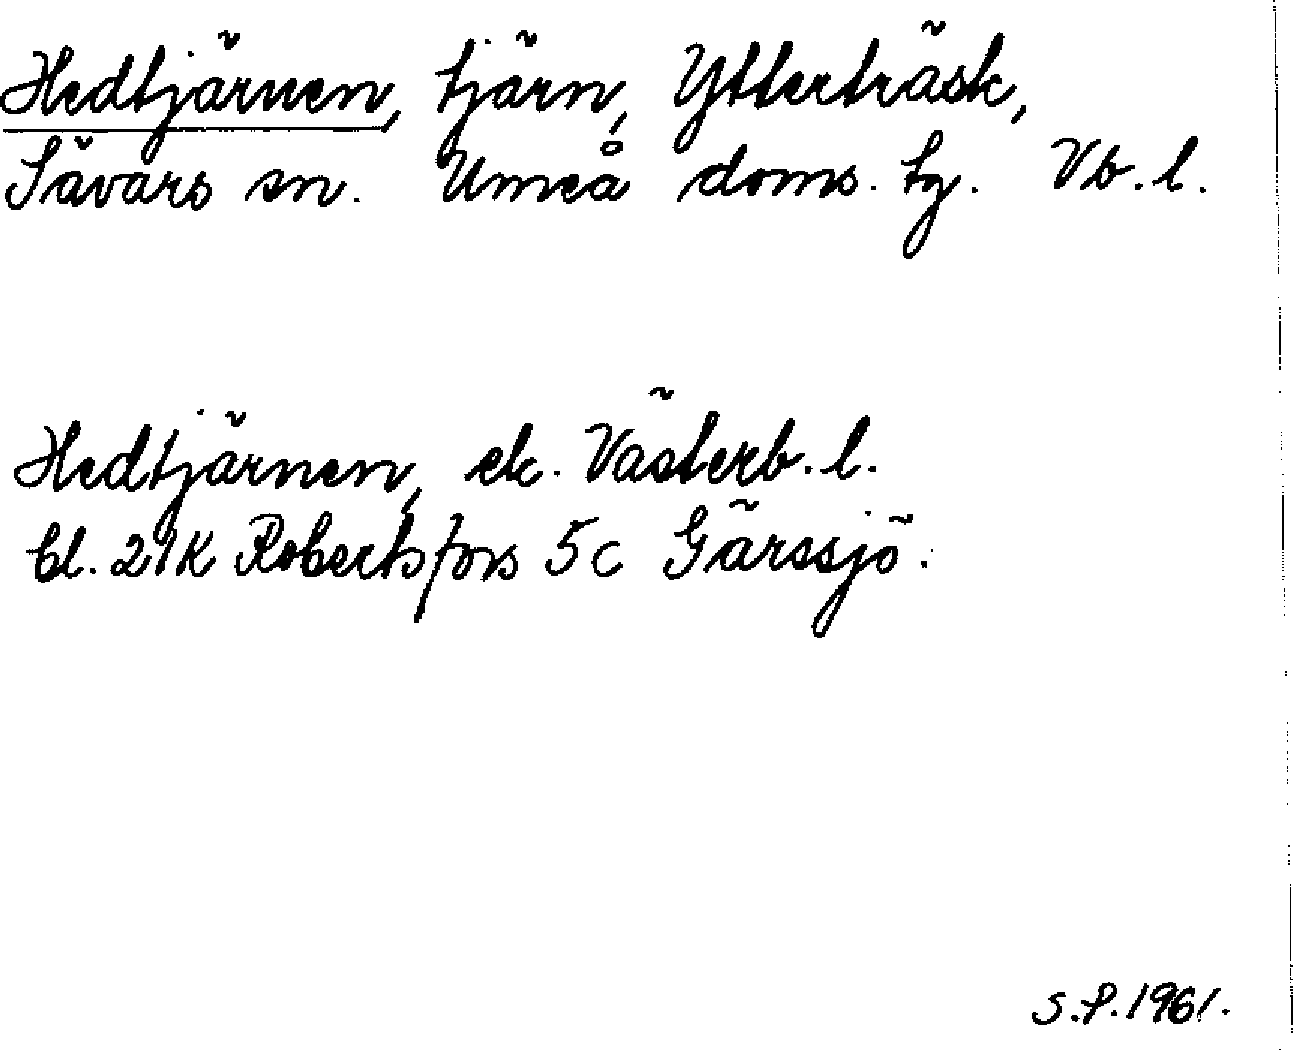 Hedtjärnen, tjärn, Ytterträsk,
Sävars sn. Umeå doms. tg. Vb. l.
Hedtjärnen, ek. Västerb. l.
bl. 21K Robertsfors 5c Gärssjö.
S.P. 1961.